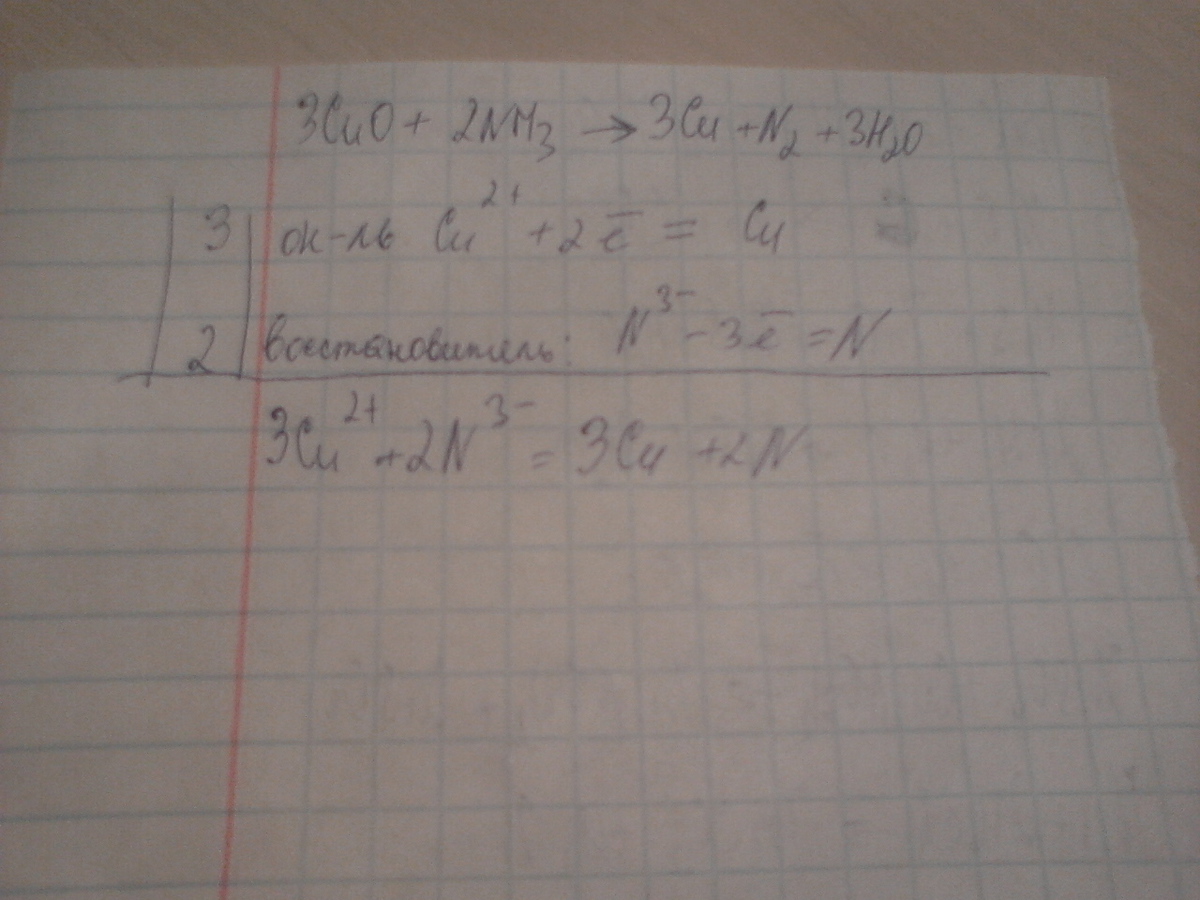 3CuO + 2NH₃ → 3Cu + N₂ + 3H₂O
3 ок-ль Cu²⁺ + 2e̅ = Cu
2 восстановитель: N³⁻ - 3e̅ = N
3Cu²⁺ + 2N³⁻ = 3Cu + 2N